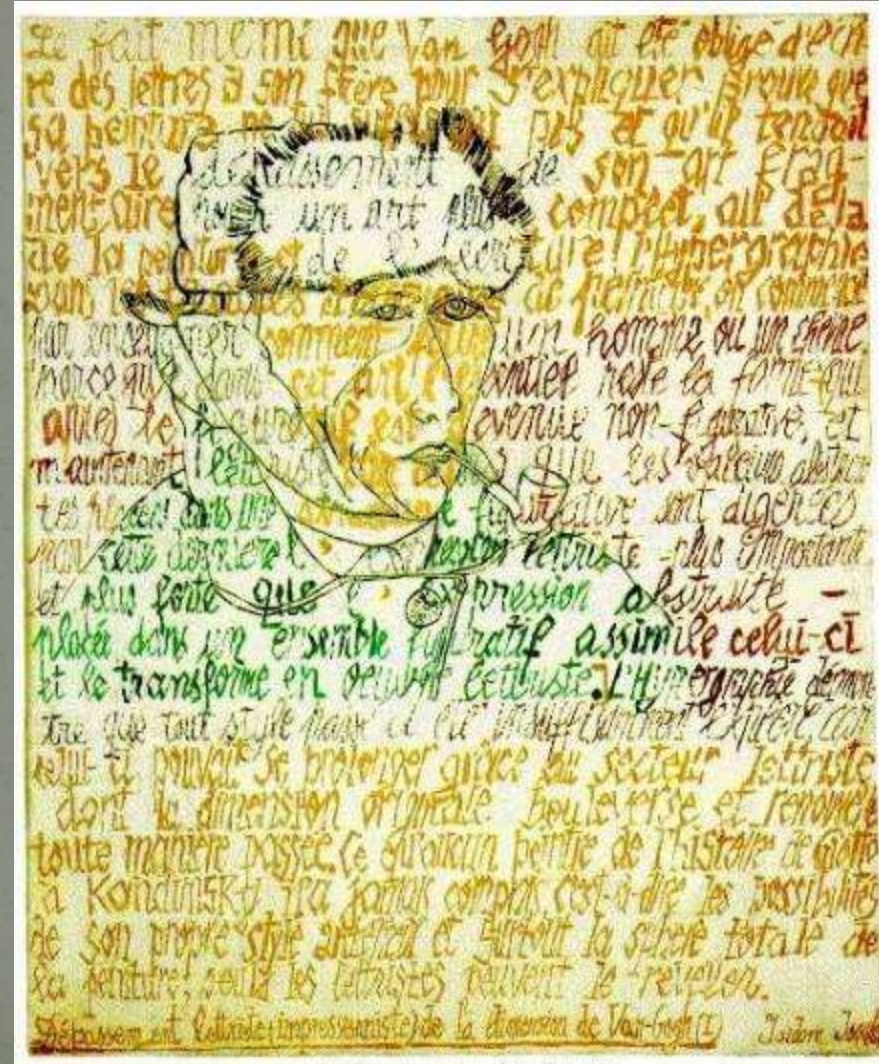 Le fait même que Van Gogh ait été obligé d'écri
re des lettres à son frère pour s'expliquer prouve que
sa peinture ne pas et qu'il tendait
vers le dépassement de son art frag-
mentaire un art plus complet, au delà
de la peinture et de l'écriture! l'Hypergraphie
de peindre, on commence
par enseigner comment un homme ou un chêne
parce que dans cet art reste la forme qui
après le est devenue non-figurative, et
maintenant lettriste que les valeurs abstrai
tes placées dans une figurative sont digérées
par cette dernière lettriste plus importante
et plus forte que l'expression abstraite -
placée dans un ensemble figuratif assimile celui-ci
et le transforme en oeuvre lettriste. L'Hypergraphie démon
tre que tout style passé a été insuffisamment exploré, car
celui-ci pouvait se prolonger grâce au secteur lettriste
dont la dimension originale bouleverse et renouvelle
toute manière passée. Ce qu'aucun peintre de l'histoire de Giotto
à Kandinsky n'a jamais compris c'est-à-dire les possibilités
de son propre style antérieur et surtout la sphère totale de
la peinture, seuls les lettristes peuvent le révéler.
Dépassement lettriste (impressionniste) de la dimension de Van-Gogh (I) Isidore Isou